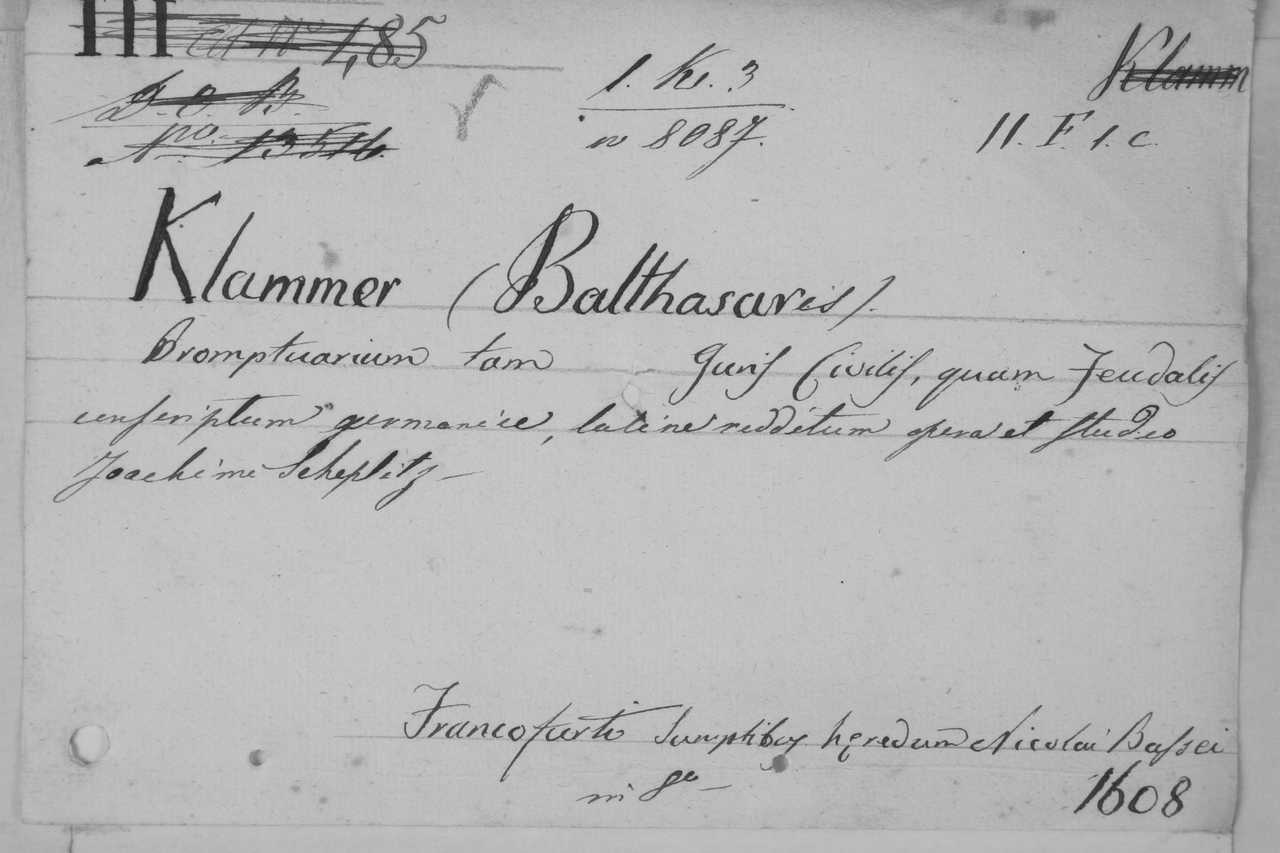 III 485
1. K. 3
Klamm
D. O. B.
n 8087.
11. F. 1. c.
No. 13516.
Klammer (Balthasaris).
Promptuarium tam Juris Civilis, quam Feudalis
conscriptum germanice, latine redditum opera et studio
Joachimi Scheplitz —
Francofurti Sumptibus hęredum Nicolai Bassei
in 8º —
1608